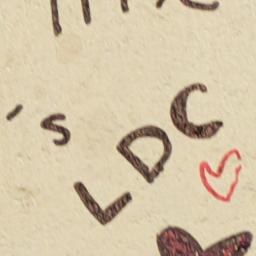 's
LDC